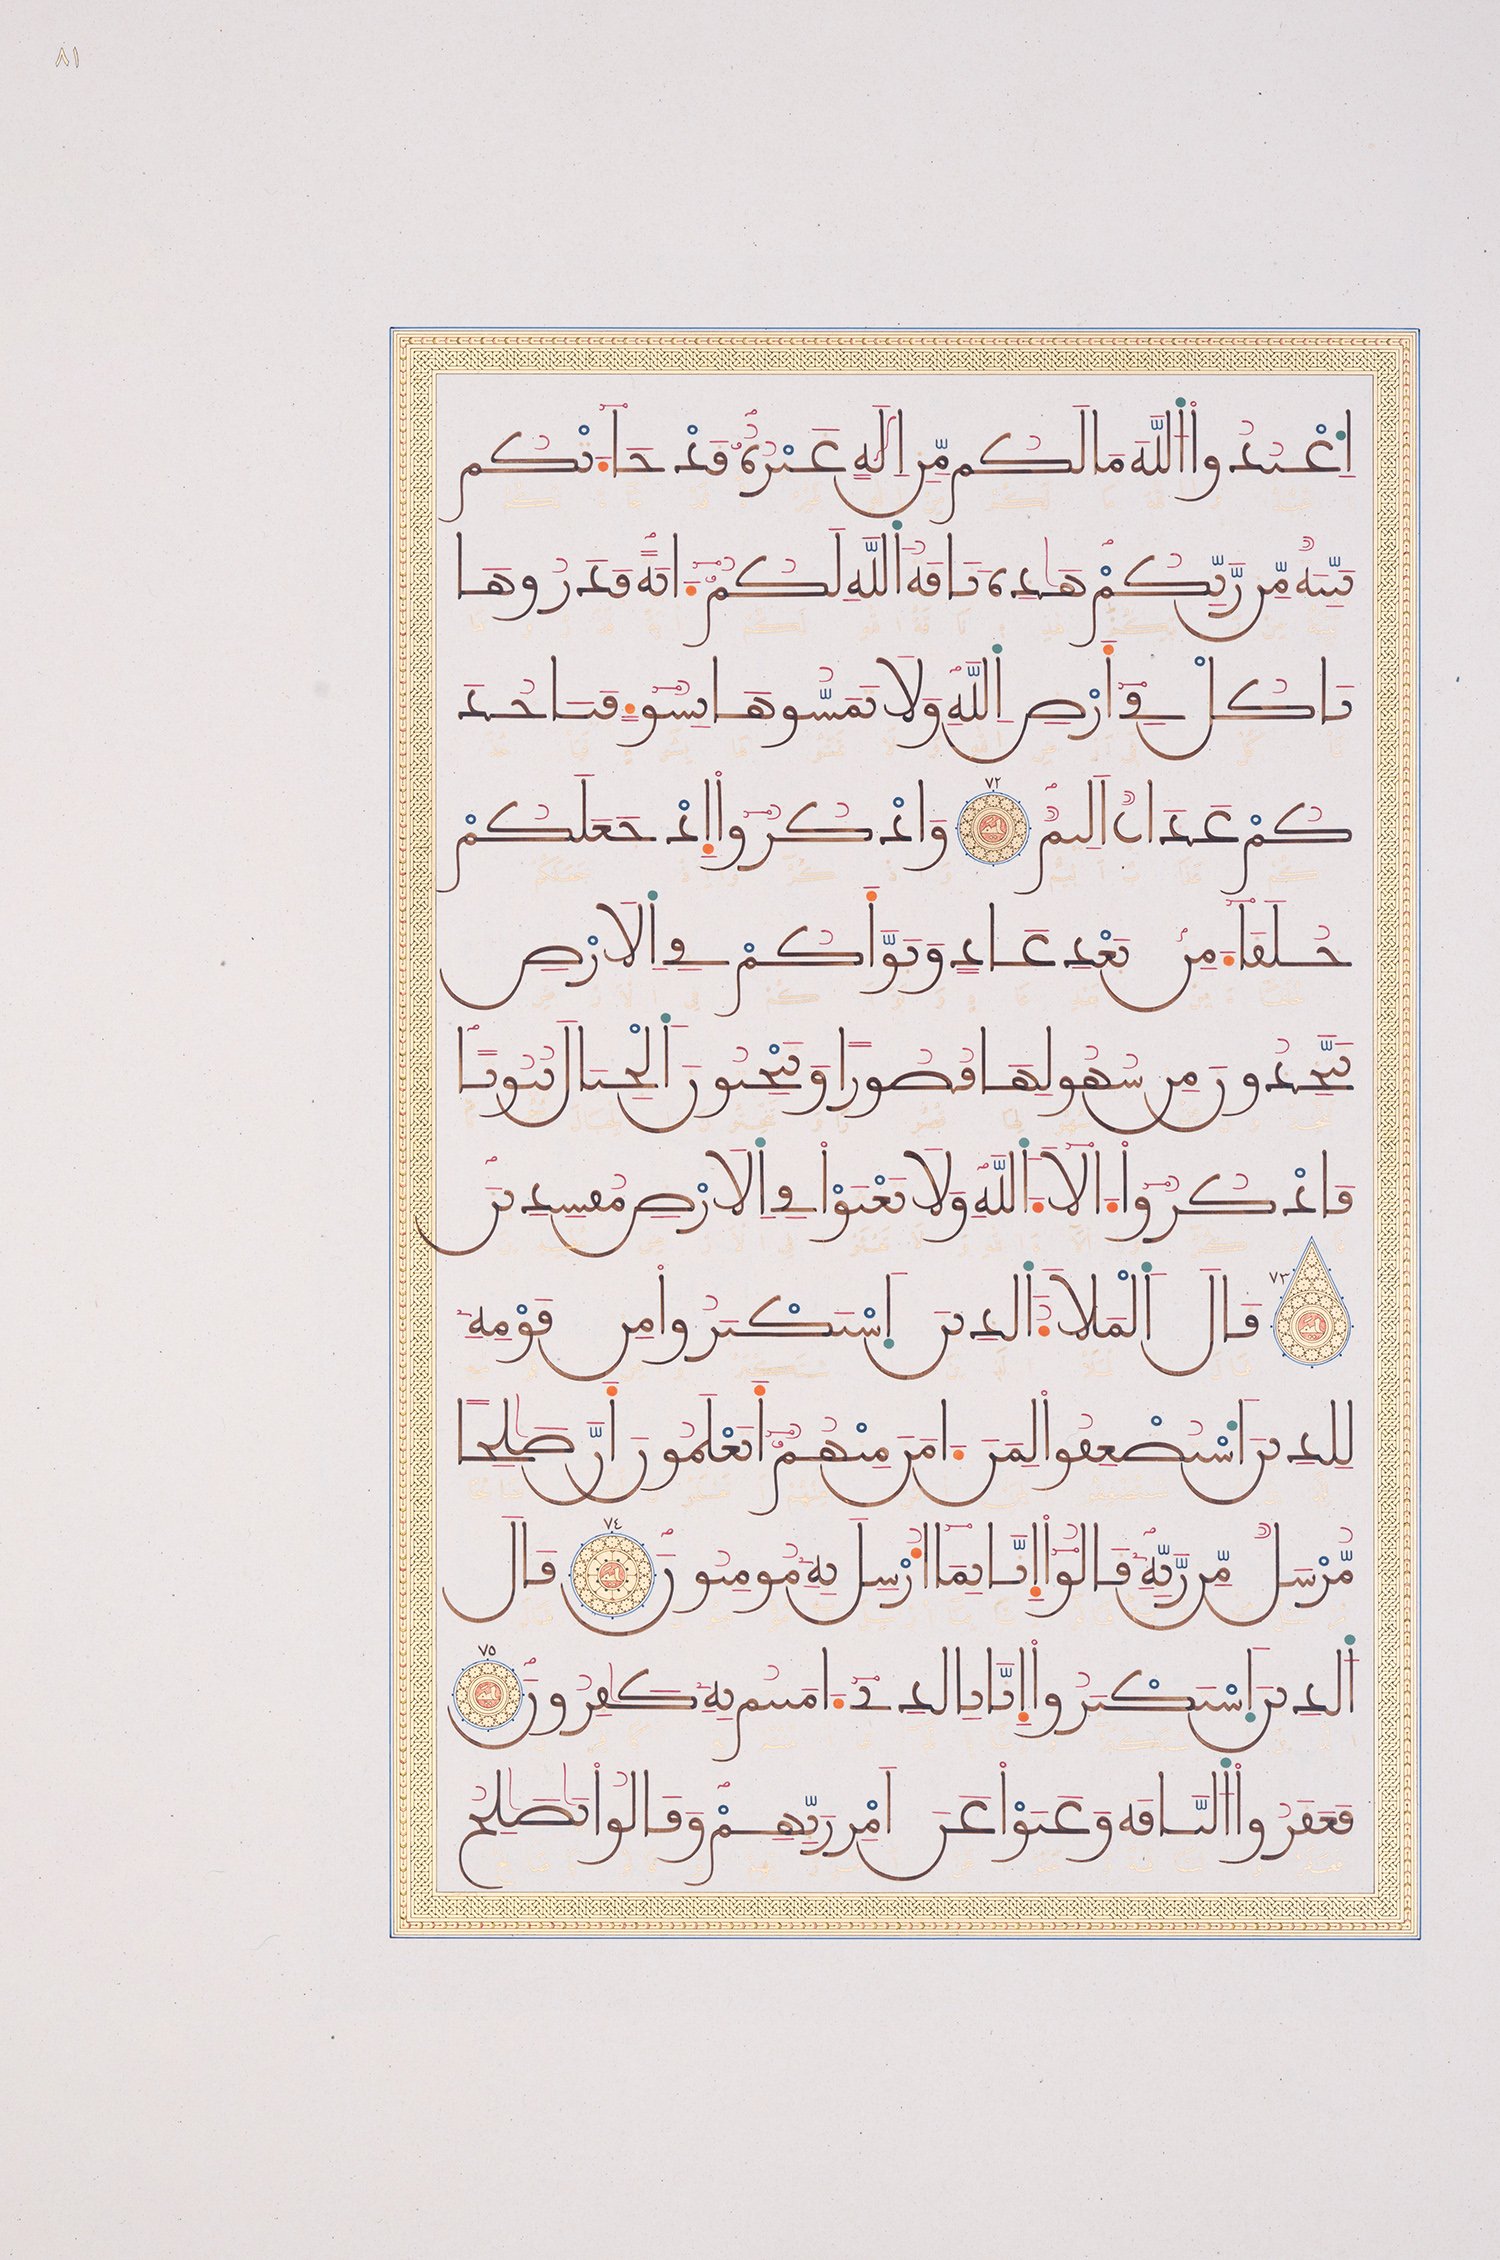 ٨١
اِعْبُدُوا اُللَّهَ مَا لَكُم مِّنِ اِلَٰهٍ غَيْرُهُۥ قَدْ جَآءَتْكُم
بَيِّنَةٌ مِّن رَّبِّكُمْ هَٰذِهِۦ نَاقَةُ اُللَّهِ لَكُمُۥٓ ءَايَةً فَذَرُوهَا
تَاكُلْ فِےٓ أَرْضِ اِللَّهِ وَلَا تَمَسُّوهَا بِسُوٓءٍ فَيَاخُذَ
كُمْ عَذَابٌ اَلِيمٌ ٧٢ وَاذْكُرُوٓا إِذْ جَعَلَكُمْ
خُلَفَآءَ مِنۢ بَعْدِ عَادٍ وَبَوَّأَكُمْ فِے اِلَارْضِ
تَتَّخِذُونَ مِن سُهُولِهَا قُصُورًا وَتَنْحِتُونَ اَلْجِبَالَ بُيُوتًا
فَاذْكُرُوٓا ءَالَآءَ اَللَّهِ وَلَا تَعْثَوْا فِے اِلَارْضِ مُفْسِدِينَ
٧٣ قَالَ اَلْمَلَأُ اُلذِينَ اَسْتَكْبَرُوا مِن قَوْمِهِۦ
لِلذِينَ اَسْتُضْعِفُوا لِمَنَ ءَامَنَ مِنْهُمُۥٓ أَتَعْلَمُونَ أَنَّ صَٰلِحًا
مُّرْسَلٌ مِّن رَّبِّهِۦ قَالُوٓا إِنَّا بِمَآ أُرْسِلَ بِهِۦ مُومِنُونَ ٧٤ قَالَ
اَلذِينَ اَسْتَكْبَرُوٓا إِنَّا بِالذِےٓ ءَامَنتُم بِهِۦ كَٰفِرُونَ ٧٥
فَعَقَرُوا اُلنَّاقَةَ وَعَتَوْا عَنَ اَمْرِ رَبِّهِمْ وَقَالُوا يَٰصَٰلِحُ